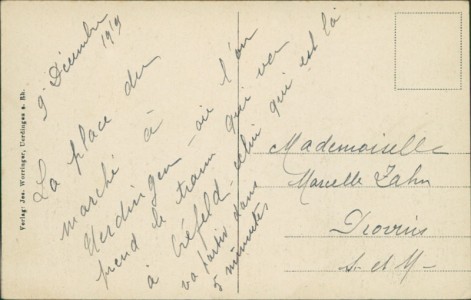 9 Décembre
1919
La place du
marché à
Uerdingen - où l'on
prend le tram qui va
à Crefeld - celui qui est là
va partir dans
5 minutes
Mademoiselle
Marcelle Zahn
Provins
S. et M.
Verlag: Jos. Worringer, Uerdingen a. Rh.